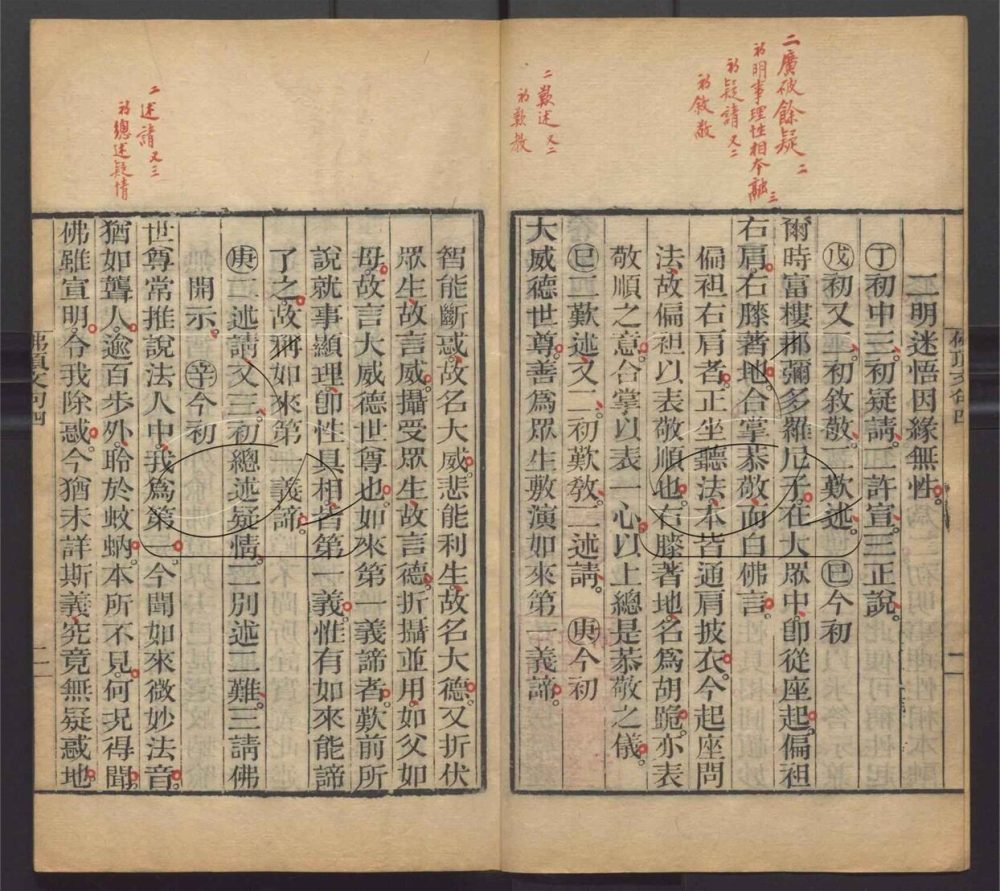 二廣破餘疑二
初明事理性相本融三
初疑請又二
初敘敬
二歎述又二
初歎教
二明迷悟因緣無性。
丁初中三初疑請。二許宣。三正說。
戊初又二初敘敬。二歎述。巳今初
爾時富樓那彌多羅尼子。在大眾中。卽從座起。偏袒
右肩。右膝著地。合掌恭敬。而白佛言。
偏袒右肩者。正坐聽法。本皆通肩披衣。今起座問
法。故偏袒以表敬順也。右膝著地。名為胡跪。亦表
敬順之意。合掌以表一心。以上總是恭敬之儀。
巳二歎述又二初歎教。二述請。庚今初
大威德世尊。善為眾生敷演如來第一義諦。
二述請又三
初總述疑情
智能斷惑。故名大威。悲能利生。故名大德。又折伏
眾生。故言威。攝受眾生。故言德。折攝並用。如父如
母。故言大威德世尊也。如來第一義諦者。歎前所
說就事顯理。卽性具相。皆第一義。惟有如來能諦
了之。故稱如來第一義諦。
庚二述請又三初總述疑情。二別述二難。三請佛
開示。辛今初
世尊常推說法人中。我為第一。今聞如來微妙法音。
猶如聾人。逾百步外。聆於蚊蚋。本所不見。何況得聞。
佛雖宣明。令我除惑。今猶未詳斯義。究竟無疑惑地。